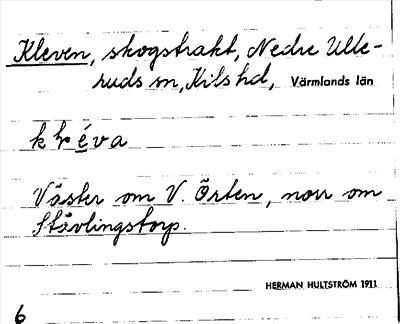 Kleven, skogstrakt, Nedre Ulle-
ruds sn, Kils hd, Värmlands län
Väster om V. Örten, norr om
Stävlingstorp.
HERMAN HULTSTRÖM 1911
6